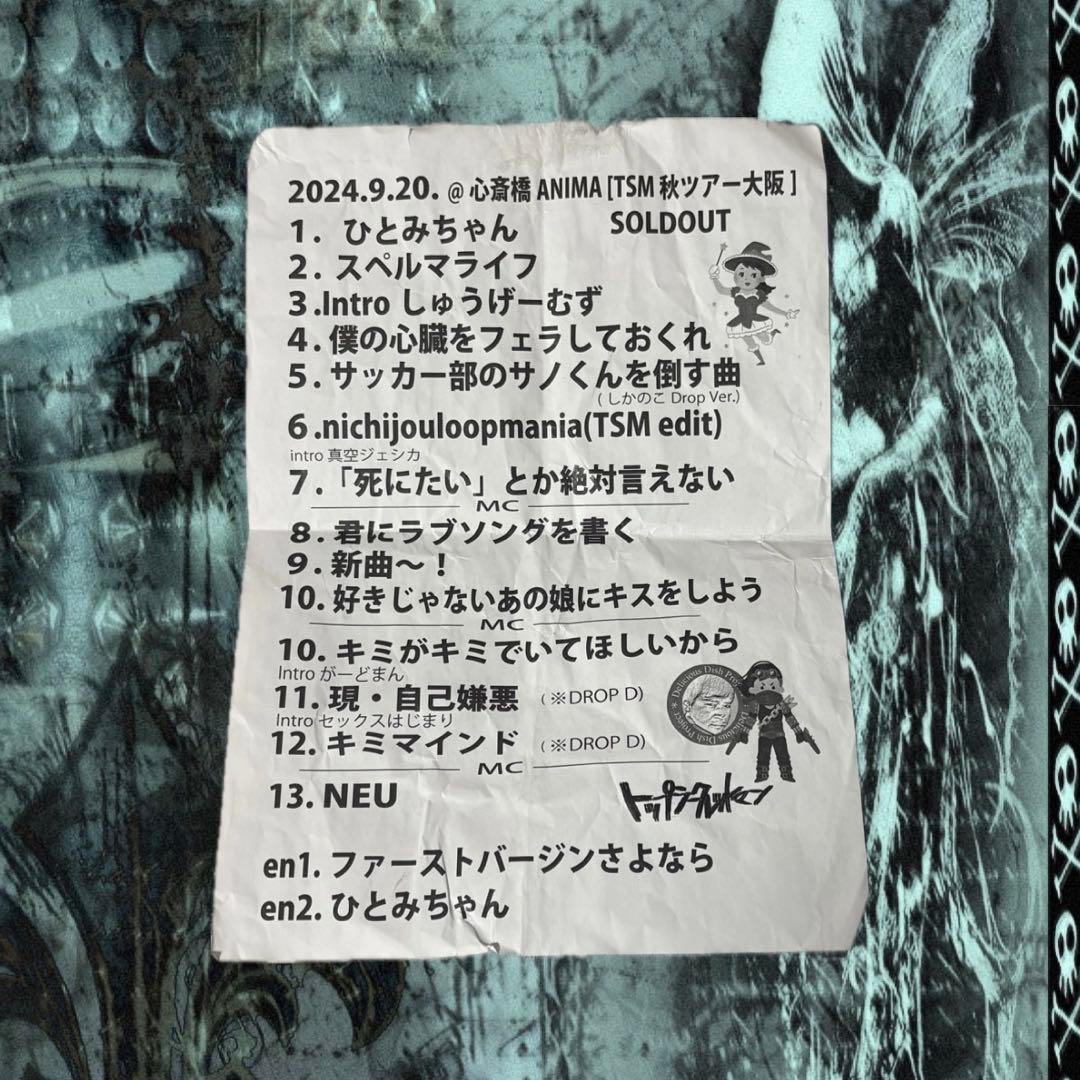 2024.9.20. @ 心斎橋 ANIMA [TSM 秋ツアー大阪 ]
SOLDOUT
1. ひとみちゃん
2. スペルマライフ
3.Intro しゅうげーむず
4. 僕の心臓をフェラしておくれ
5. サッカー部のサノくんを倒す曲
( しかのこ Drop Ver.)
6.nichijouloopmania(TSM edit)
intro 真空ジェシカ
7.「死にたい」とか絶対言えない
MC
8. 君にラブソングを書く
9. 新曲〜！
10. 好きじゃないあの娘にキスをしよう
MC
10. キミがキミでいてほしいから
Intro がーどまん
11. 現・自己嫌悪 (※DROP D)
Intro セックスはじまり
12. キミマインド (※DROP D)
MC
13. NEU
トップシークレットマン
en1. ファーストバージンさよなら
en2. ひとみちゃん